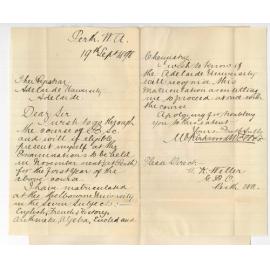 Perth. W.A.
19th Sept
The Registrar
Adelaide University
Adelaide
Dear Sir
I wish to go through
the course of B.Sc.
and will if eligible
present myself at the
Examinations to be held
in November next (Perth)
for the first year of the
above course
I have matriculated
at the Melbourne University
in the seven subjects:—
English, French, History,
Arithmetic, Algebra, Euclid and
Chemistry
I wish to know if
the Adelaide University
will recognise this
matriculation as entitling
me to proceed at once with
the course
Apologising for troubling
you to this extent
Yours Truly
Please Direct
G.P.O.
Perth WA.